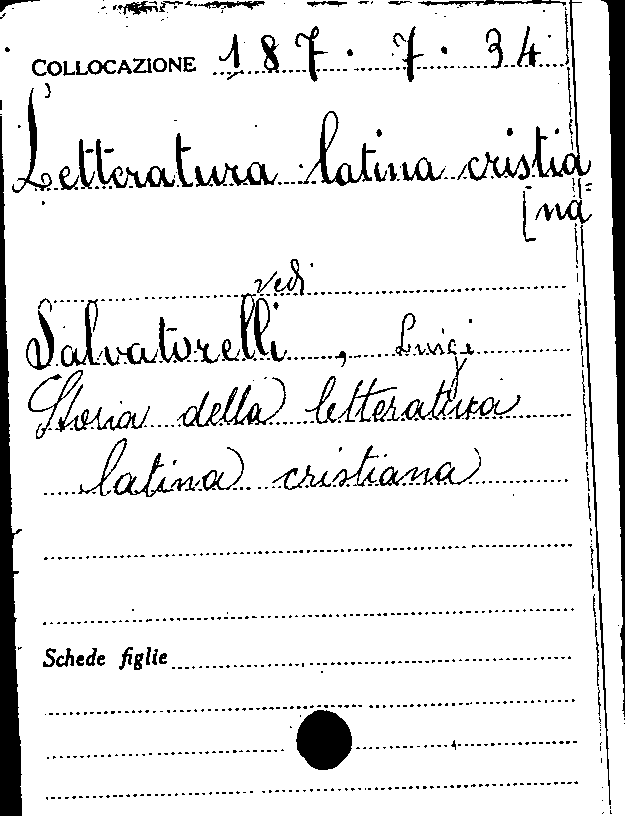 COLLOCAZIONE 187.7.34
Letteratura latina cristia
[na
vedi
Salvatorelli, Luigi
Storia della letteratura
latina cristiana
Schede figlie